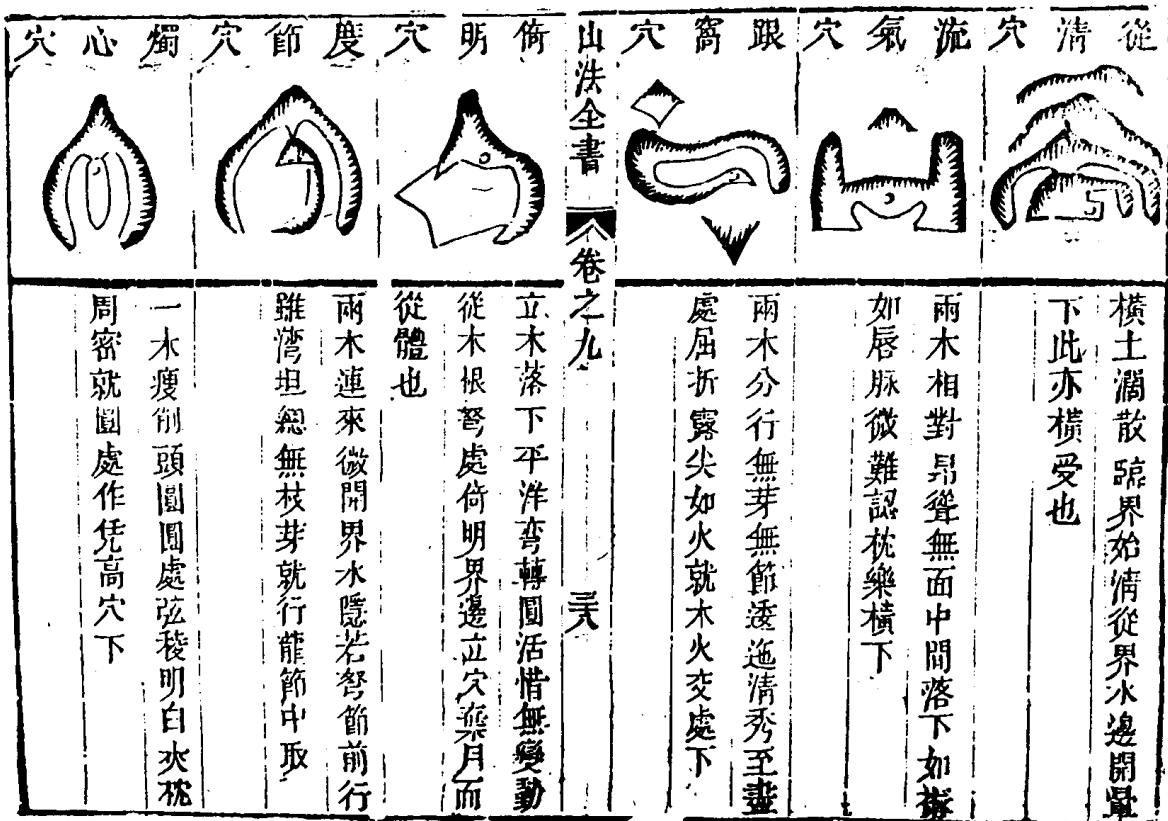 從清穴
橫土濶散臨界始清從界水邊開暈
下此亦橫受也
流氣穴
兩木相對昂聳無面中間落下如
如唇脉微難認枕樂橫下
跟窩穴
兩木分行無芽無節逶迤清秀至盡
處屈折露尖如火就木火交處下
山法全書
卷之九
三八
倚明穴
立木落下平洋弯轉圓活惜無變動
從木根弩處倚明界邊立穴棄月而
從體也
度節穴
兩木連來微開界水隱若弩節前行
雖湾坦總無枝芽就行龍節中取
燭心穴
一木瘦削頭圓圓處弦稜明白夾枕
周密就圓處作凭高穴下